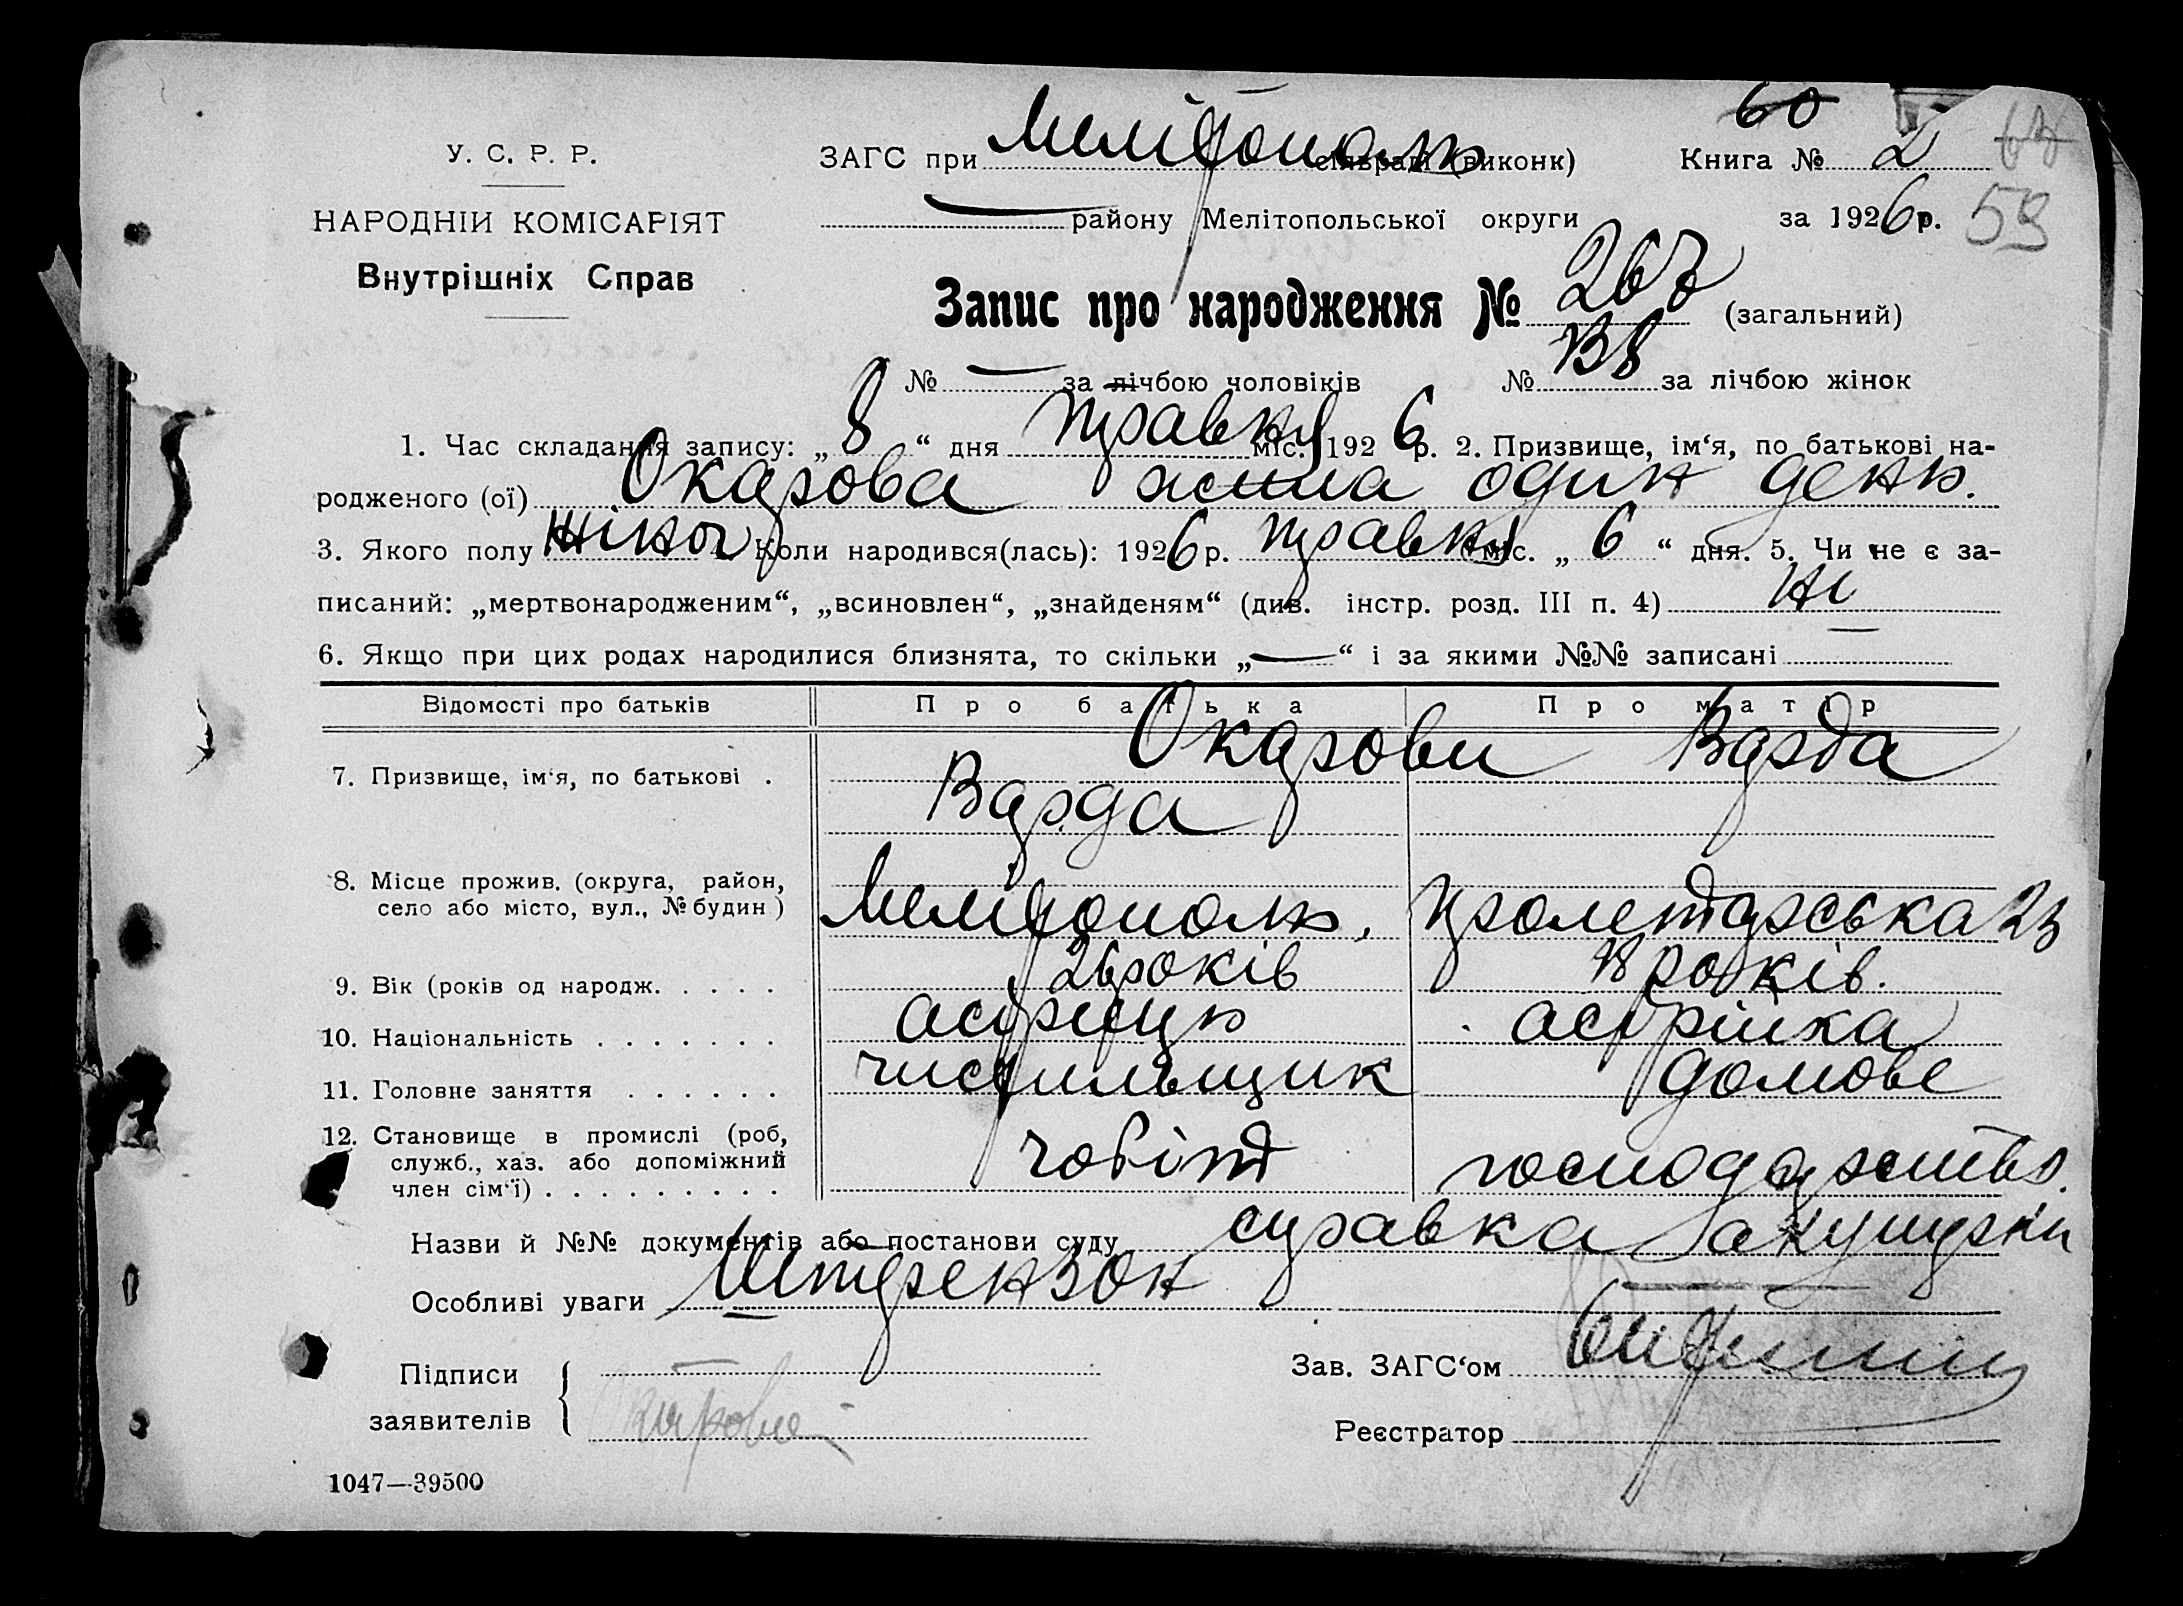 60
У. С. Р. Р.
ЗАГС при Мелітополь сільраді (виконк) Книга № 2
59
НАРОДНІЙ КОМІСАРІЯТ
Внутрішніх Справ
— району Мелітопольської округи за 1926 р.
Запис про народження № 267 (загальний)
№ — за лічбою чоловіків № за лічбою жінок
1. Час складання запису: „ 8 “ дня травня міс. 1926 р. 2. Призвище, ім‘я, по батькові на-
родженого (ої) Окарова жила один день.
3. Якого полу жіноч 4. Коли народився(лась): 1926 р. травня міс. „ 6 “ дня. 5. Чи не є за-
писаний: „мертвонародженим“, „всиновлен“, „знайденям“ (див. інстр. розд. III п. 4) ні
6. Якщо при цих родах народилися близнята, то скільки „—“ і за якими №№ записані —
Відомості про батьків Про батька Про матір
7. Призвище, ім‘я, по батькові . Окарови Варда
Варда
8. Місце прожив. (округа, район,
село або місто, вул., № будин) Мелітополь, пролетарська 23
9. Вік (років од народж. . . . . 26 років 18 років.
10. Національність . . . . . . . асирієць асірійка
11. Головне заняття . . . . . . чистильщик домове
12. Становище в промислі (роб,
служб., хаз. або допоміжний
член сім‘ї) . . . . . . . . . господарство.
Назви й №№ документів або постанови суду справка акушерки
Особливі уваги Штерензон
Підписи
заявителів
Окарова
Зав. ЗАГС‘ом
Реєстратор
1047—39500